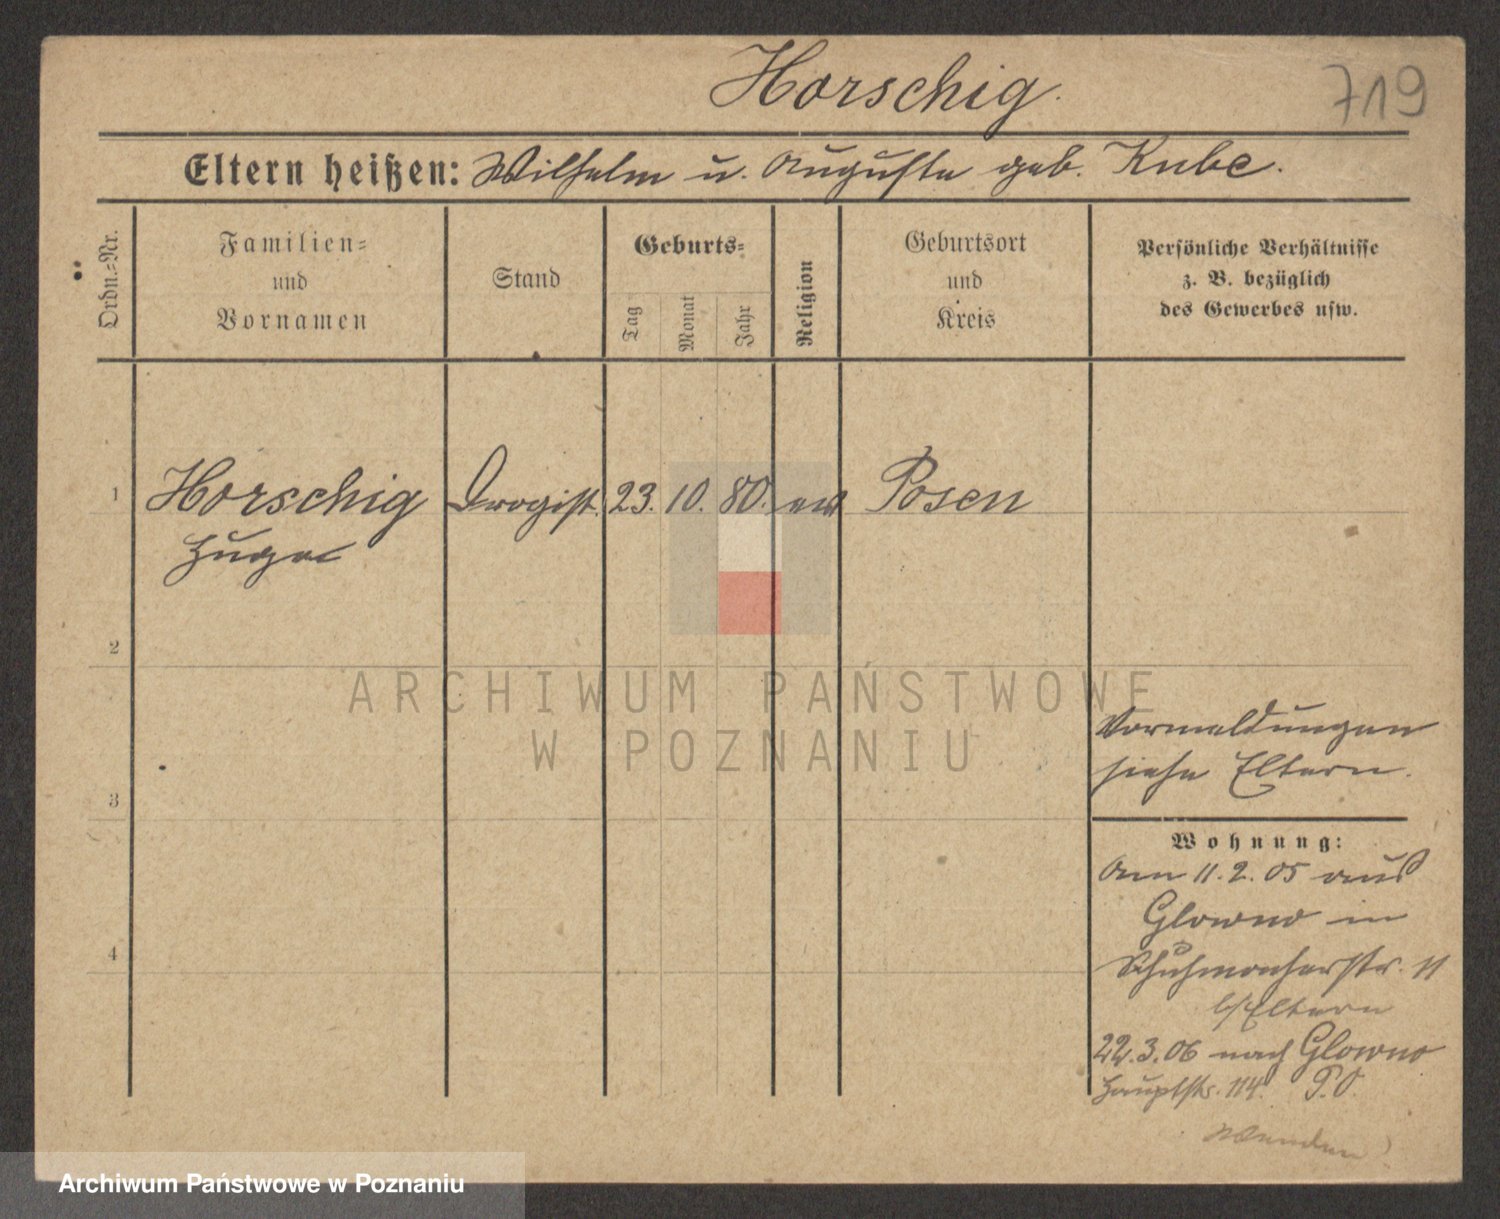 Horschig.
719
Eltern heißen: Wilhelm u. Auguste geb. Kube.
Ordn.-Nr.
Familien- und Vornamen
Stand
Geburts-
Tag
Monat
Jahr
Religion
Geburtsort und Kreis
Persönliche Verhältnisse
z. B. bezüglich
des Gewerbes usw.
1 Horschig Drogist. 23. 10. 80. ev Posen
Hugo
2
ARCHIWUM PAŃSTWOWE
W POZNANIU
Vormeldungen
siehe Eltern.
3
Wohnung:
Am 11.2.05 aus
Glowno in
4
Schuhmacherstr. 11
b/Eltern
22.3.06 nach Glowno
Hauptstr. 114. P.O.
Wenden
Archiwum Państwowe w Poznaniu